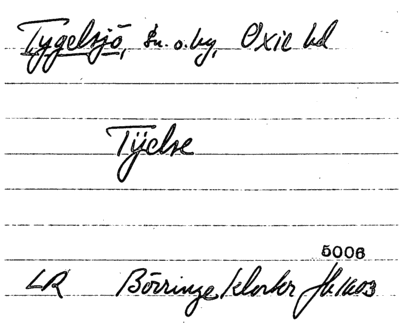 Tygelsjö, sn. o. by, Oxie hd
Tÿelse
5006
LR Börringe kloster Jb 1603